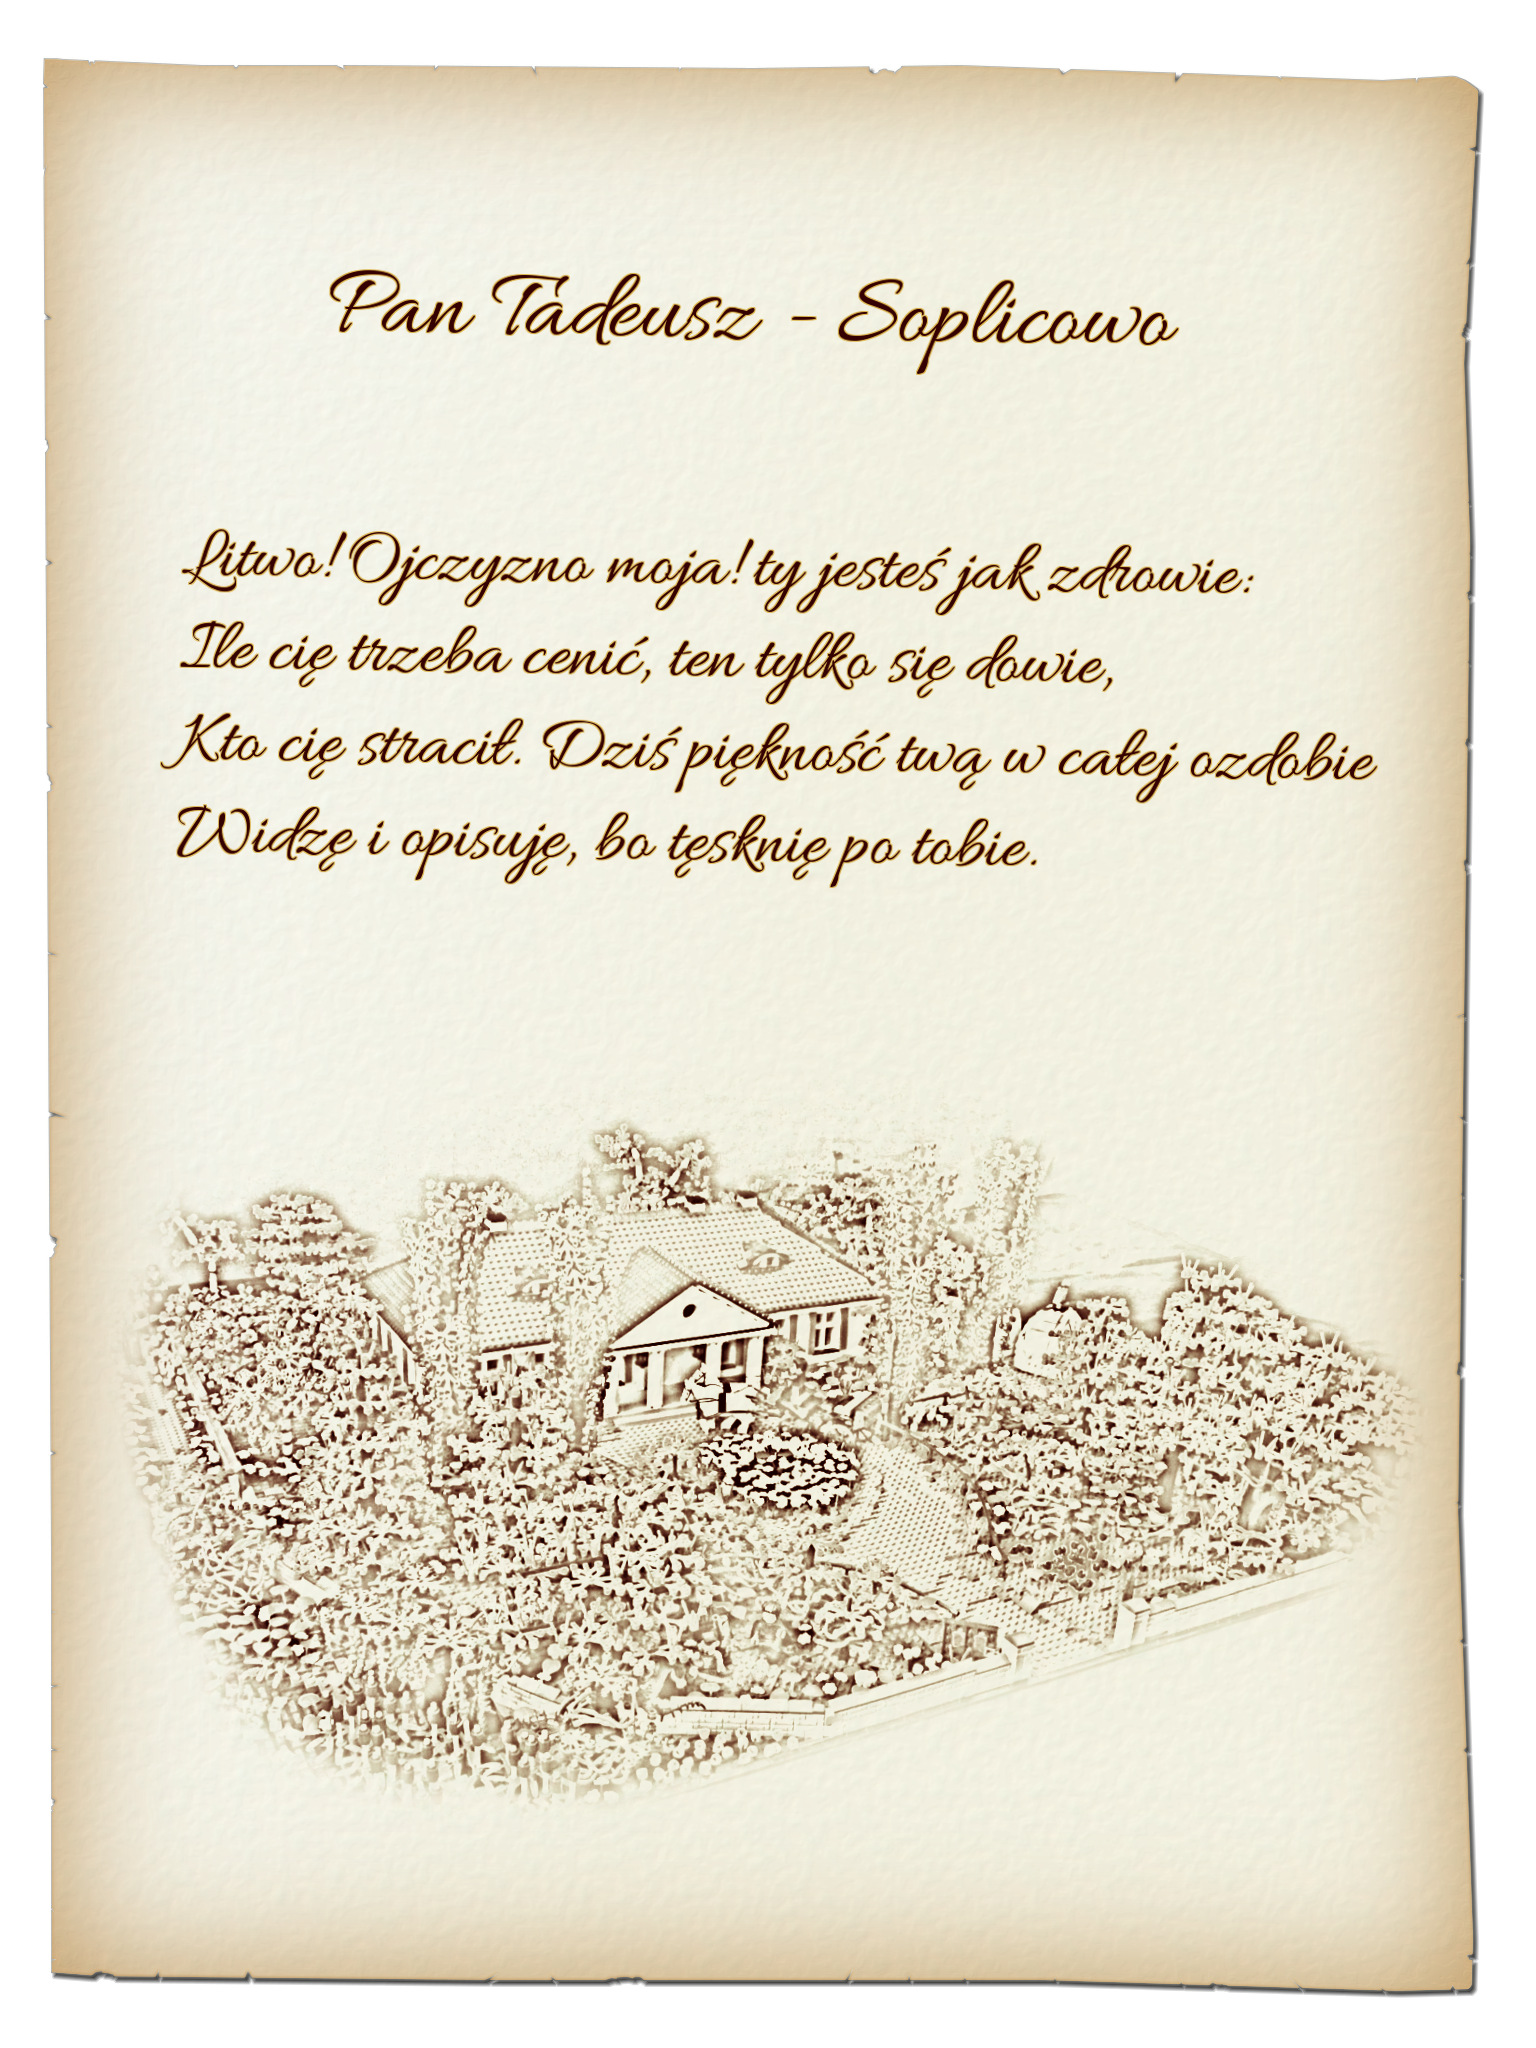 Pan Tadeusz - Soplicowo
Litwo! Ojczyzno moja! ty jesteś jak zdrowie:
Ile cię trzeba cenić, ten tylko się dowie,
Kto cię stracił. Dziś piękność twą w całej ozdobie
Widzę i opisuję, bo tęsknię po tobie.